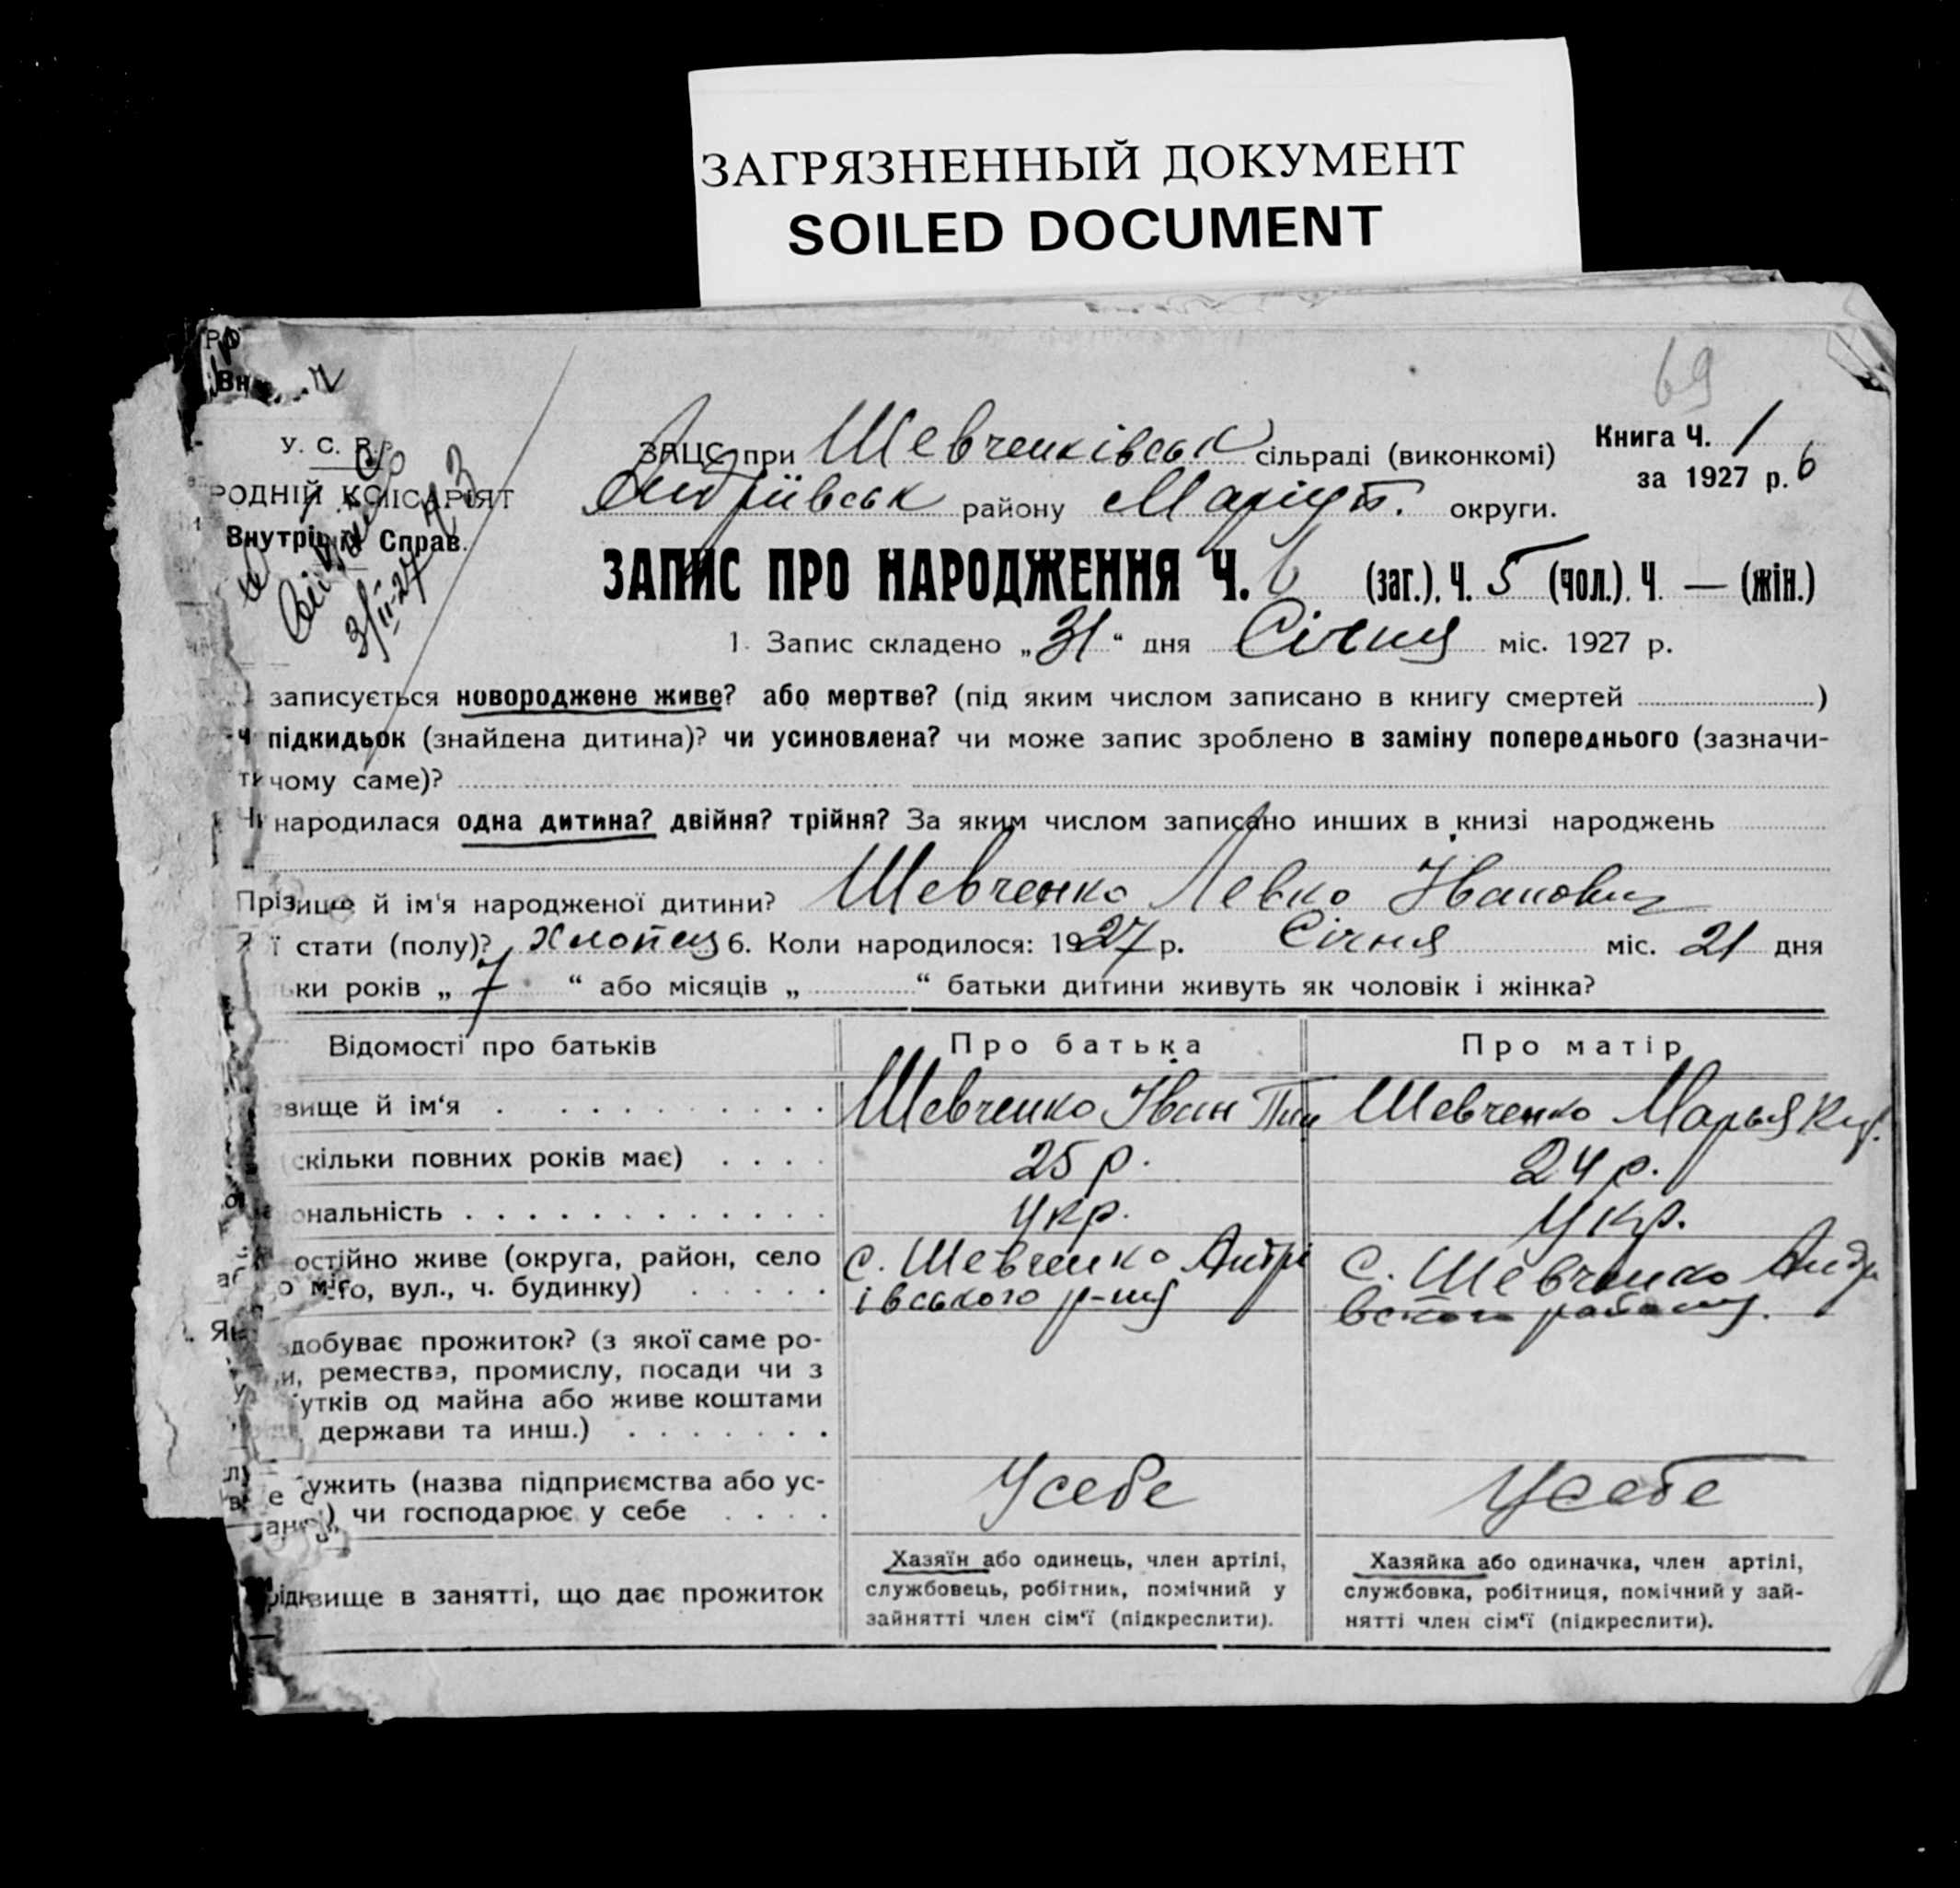 ЗАГРЯЗНЕННЫЙ ДОКУМЕНТ
SOILED DOCUMENT
69
У. С. Р. Р.
РОДНІЙ КОМІСАРІЯТ
Внутріш Справ.
3/II-27
ЗАЦС при Шевченківськ сільраді (виконкомі)
Книга Ч. 1
за 1927 р. 6
Андріївськ району Маріуп. округи.
ЗАПИС ПРО НАРОДЖЕННЯ Ч. 6 (заг.). Ч. 5 (чол.). Ч. — (жін.)
1. Запис складено „31“ дня Січня міс. 1927 р.
записується новороджене живе? або мертве? (під яким числом записано в книгу смертей )
підкидьок (знайдена дитина)? чи усиновлена? чи може запис зроблено в заміну попереднього (зазначи-
ти чому саме)?
Чи народилася одна дитина? двійня? трійня? За яким числом записано инших в книзі народжень
Прізвище й ім'я народженої дитини? Шевченко Левко Іванович
ї стати (полу)? Хлопець 6. Коли народилося: 1927 р. Січня міс. 21 дня
ьки років „ 7 “ або місяців „ “ батьки дитини живуть як чоловік і жінка?
Відомості про батьків
Про батька
Про матір
звище й ім‘я
Шевченко Іван
Шевченко Марья
(скільки повних років має)
25 р.
24 р.
ональність
Укр.
Укр.
остійно живе (округа, район, село
о місто, вул., ч. будинку)
с. Шевченко Андрі
івського р-ну
с. Шевченко Андр
вского району.
здобуває прожиток? (з якої саме ро-
и, ремества, промислу, посади чи з
утків од майна або живе коштами
держави та инш.)
ужить (назва підприємства або ус-
анові) чи господарює у себе
Усебе
Усебе
вище в занятті, що дає прожиток
Хазяїн або одинець, член артілі,
службовець, робітник, помічний у
зайнятті член сім‘ї (підкреслити).
Хазяйка або одиначка, член артілі,
службовка, робітниця, помічний у зай-
нятті член сім‘ї (підкреслити).